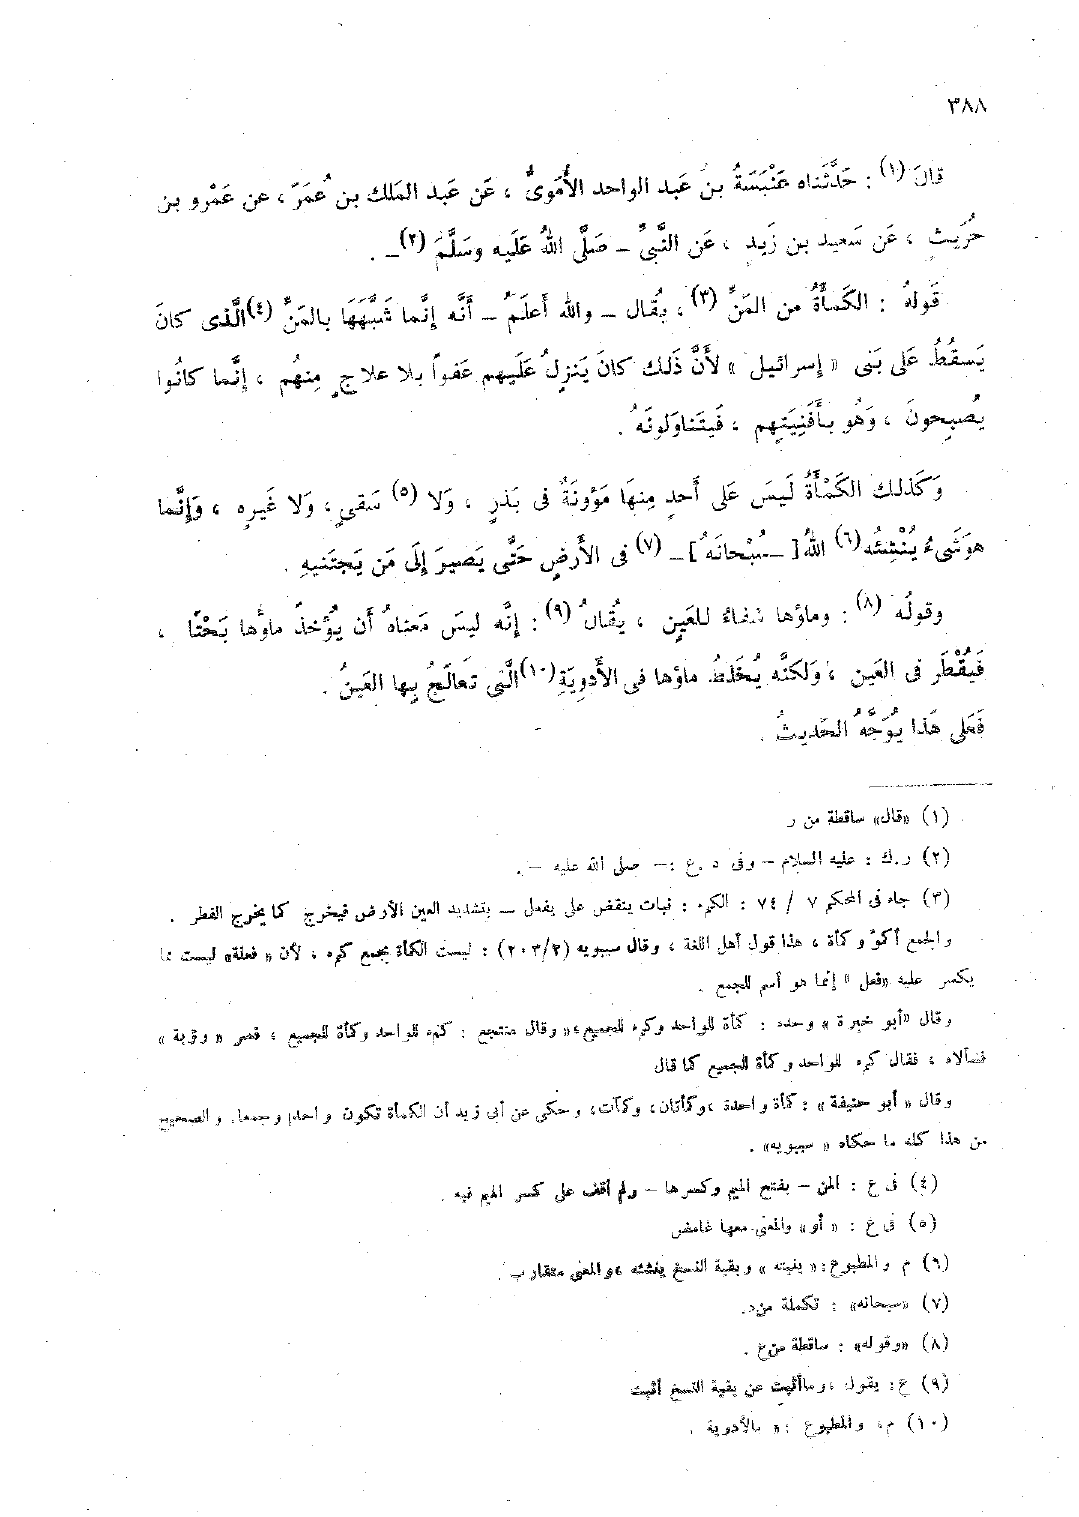 ٣٨٨
قالَ (١) : حَدَّثَناه عَنْبَسَةُ بنُ عَبد الواحد الأُمَوىُّ ، عَن عَبد المَلك بن عُمَرَ ، عن عَمْرو بن
حُرَيثٍ ، عَن سَعيد بن زَيدٍ ، عَن النَّبىِّ – صَلَّى اللهُ عَلَيه وسَلَّمَ (٢)– .
قَولهُ : الكَمأَةُ من المَنِّ (٣) ، يُقال – والله أَعلَمُ – أَنَّه إنَّما شَبَّهَهَا بالمَنِّ (٤) الَّذى كانَ
يَسقُطُ عَلى بَنى « إسرائيل » لأَنَّ ذَلك كانَ يَنزلُ عَلَيهم عَفواً بلا علاجٍ مِنهُم ، إنَّما كانُوا
يُصبحونَ ، وَهُو بأَفنِيَتِهم ، فَيتَناوَلونَهُ .
وَكَذلك الكَمْأَةُ لَيسَ عَلى أَحدٍ مِنهَا مَؤونَةٌ فى بَذرٍ ، وَلا (٥) سَقىٍ ، وَلا غَيرِه ، وَإنَّما
هوَ شَىءٌ يُنْشِئُه (٦) اللهُ [ – سُبْحانَهُ ] – (٧) فى الأَرضِ حَتَّى يَصيرَ إلَى مَن يَجتَنيهِ .
وقولُه (٨) : وماؤها شفاءٌ للعَينِ ، يُقالُ (٩) : إنَّه ليسَ مَعناهُ أَن يُؤْخذَ ماؤُها بَحْتًا ،
فَيُقْطَر فى العَين ، وَلكنَّه يُخلَطُ ماؤها فى الأَدوِيَةِ (١٠) الَّتى تعَالَجُ بِها العَينُ .
فَعَلى هَذا يُوَجَّهُ الحَديثُ .
(١) «قال» ساقطة من ر
(٢) ر.ك : عليه السلام – وفى د .ع :– صلى الله عليه – .
(٣) جاء فى المحكم ٧ / ٧٤ : الكمء : نبات ينقض على يفعل – بتشديد العين الأرض فيخرج كما يخرج الفطر .
والجمع أكمؤ وكمأة ، هذا قول أهل اللغة ، وقال سيبويه (٢٠٣/٢) : ليست الكمأة بجمع كمء ، لأن « فعلة» ليست مما
يكسر عليه «فعل » إنما هو أسم للجمع .
وقال «أبو خيرة » وحده : كمأة للواحد وكمء للجميع ،« وقال منتجع : كمء للواحد وكمأة للجميع ، فمر « رؤبة »
فسألاه ، فقال كمء للواحد وكمأة للجميع كما قال
وقال « أبو حنيفة » : كمأة واحدة ،وكمأتان، وكمآت، وحكى عن أبى زيد أن الكمأة تكون واحدا وجمعا. والصحيح
من هذا كله ما حكاه « سيبويه» .
(٤) فى ع : المن – بفتح الميم وكسرها – ولم أقف على كسر الميم فيه .
(٥) فى ع : « أو» والمعنى معها غامض
(٦) م والمطبوع :« ينبته » وبقية النسخ ينشئه ،والمعنى متقارب .
(٧) «سبحانه» : تكملة من د.
(٨) «وقوله» : ساقطة من ع .
(٩) ع : يقول ،وماأثبت عن بقية النسخ أثبت
(١٠) م، والمطبوع :« بالأدوية .